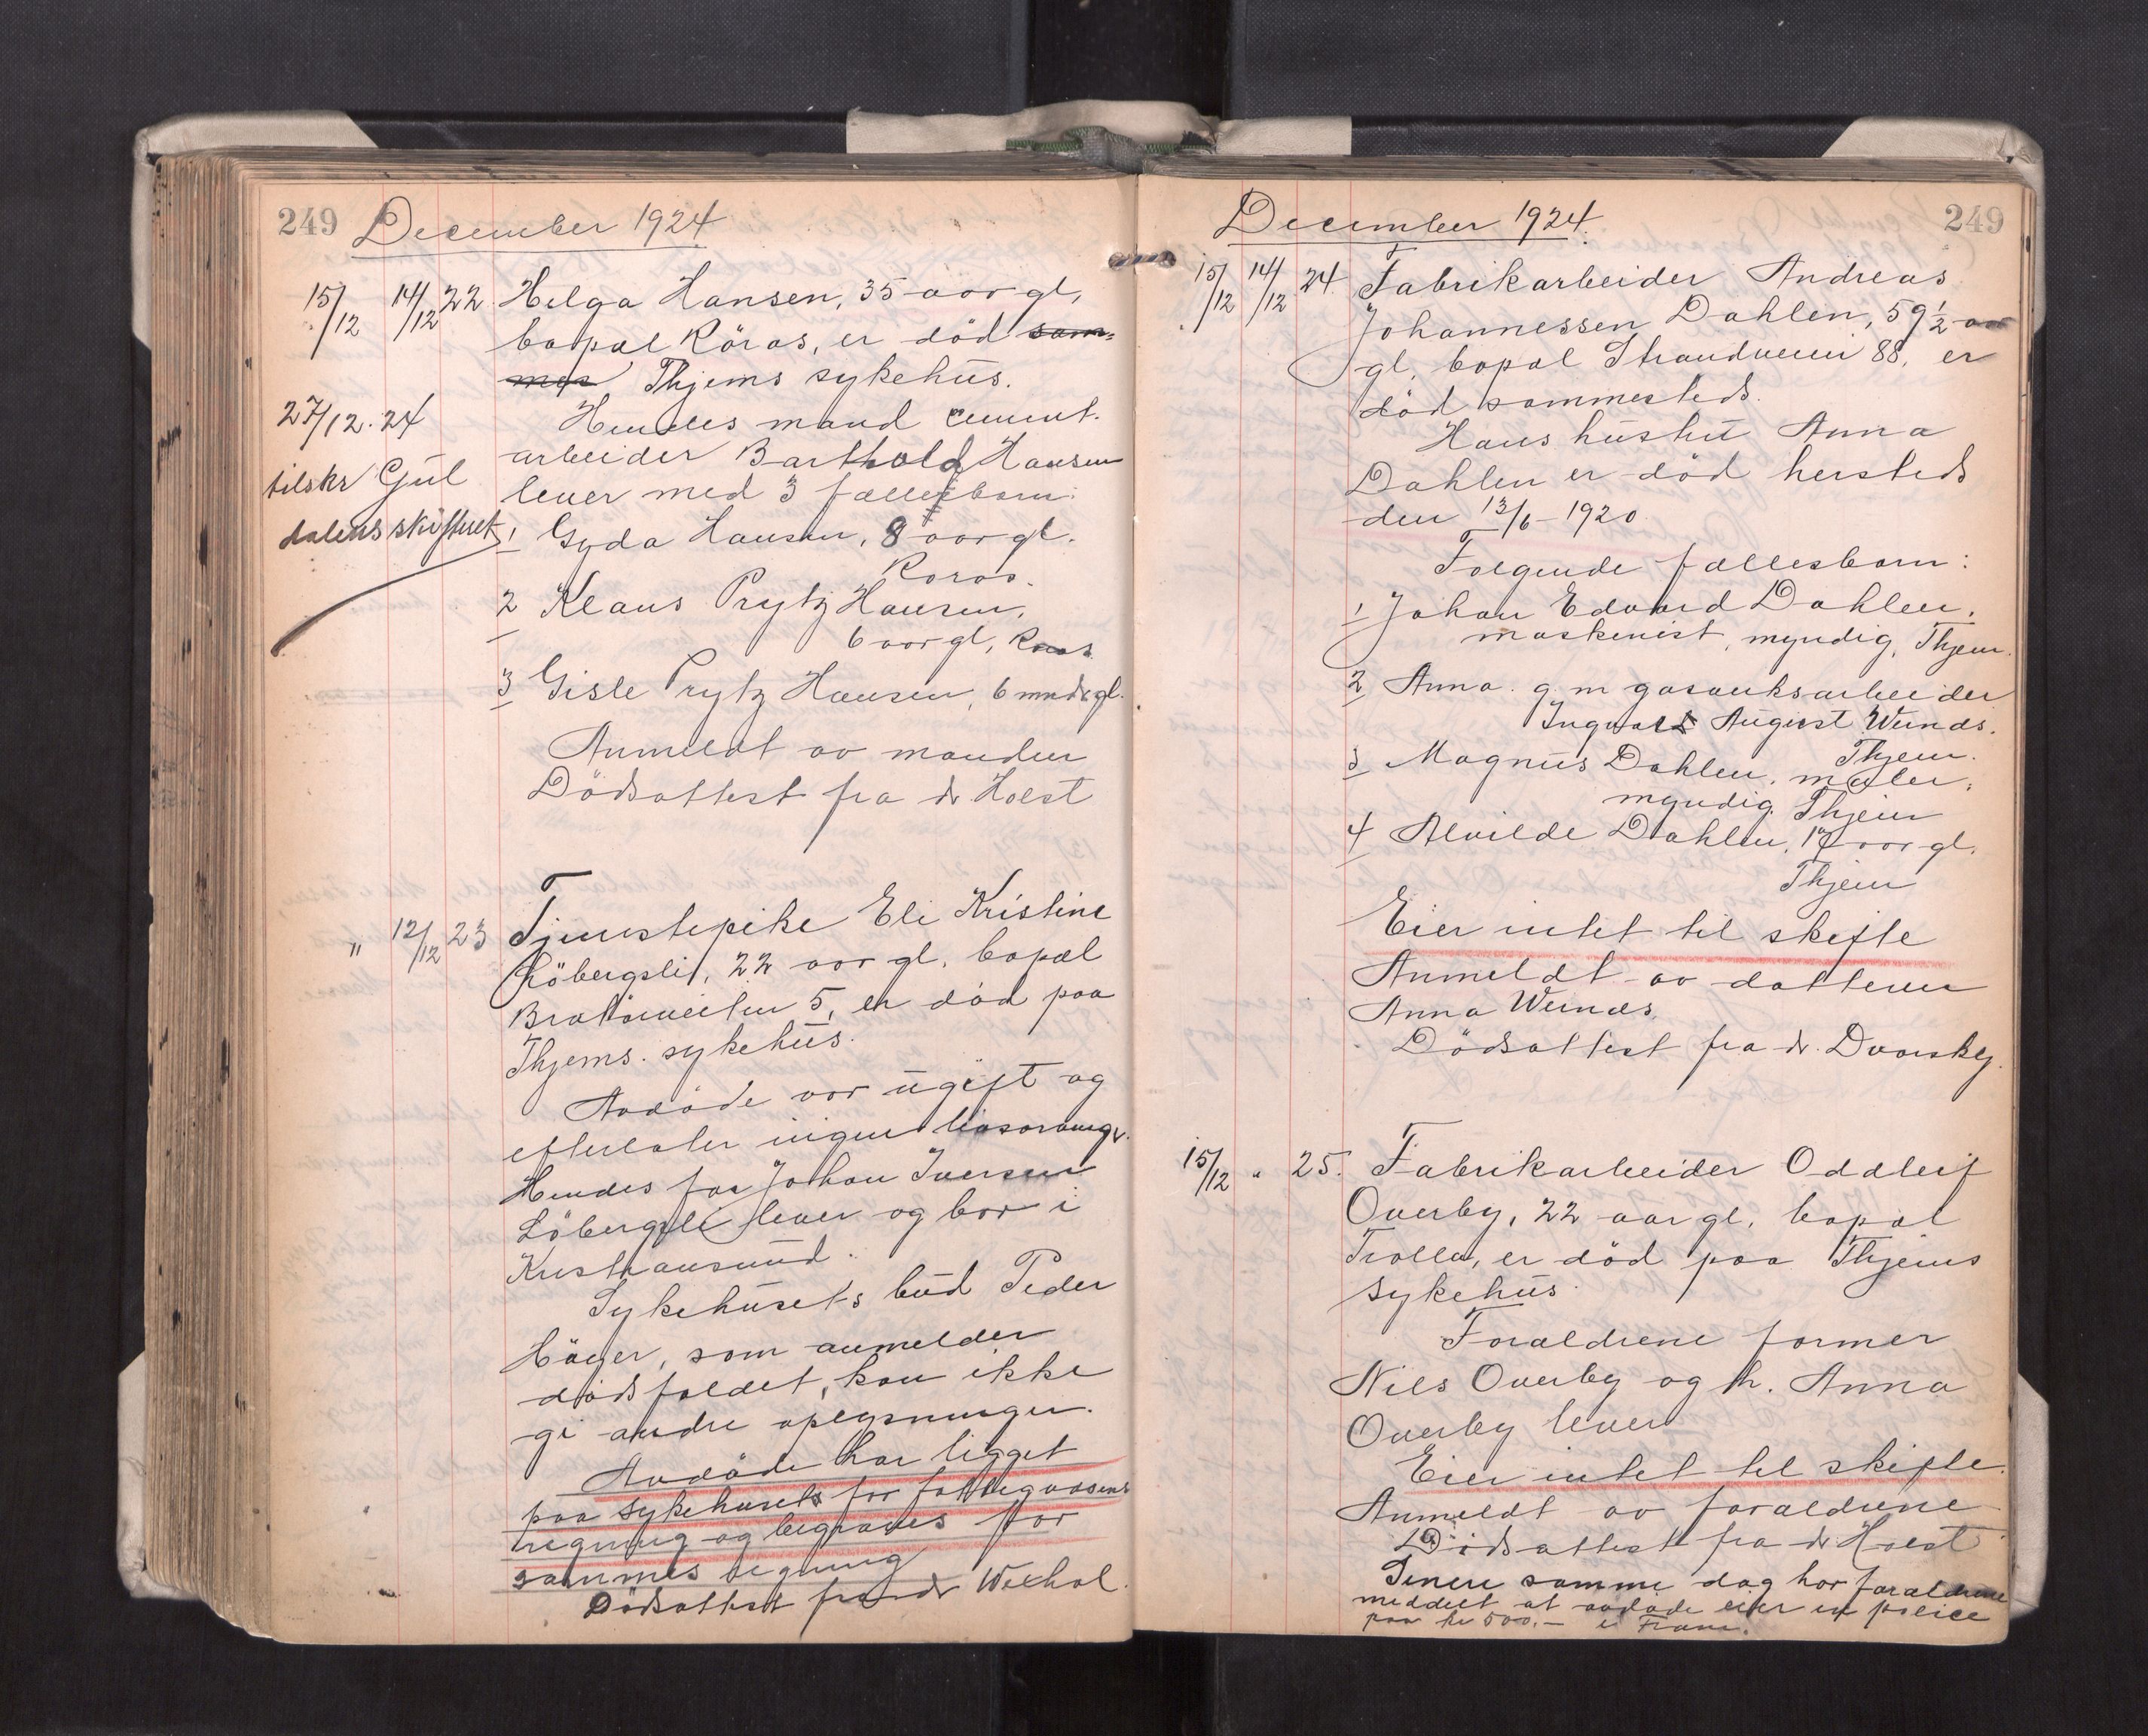 249 December 1924
15/12 14/12 22 Helga Hansen, 35 aar gl,
bopæl Röros, er död sam-
mes Thjems sykehus.
27/12. 24
Hendes mand cement.
arbeider Barthold Hansen
tilskr Gul
lever med 3 fællesbarn:
dalens skifteret
1 Gyda Hansen, 8 aar gl.
Röros.
2 Klaus Prytz Hansen,
6 aar gl, Röros
3 Gisle Prytz Hansen, 6 mndr gl.
Anmeldt av manden
Dödsattest fra dr Holst
" 12/12 23 Tjenestepike Eli Kristine
Löbergsli, 22 aar gl. bopæl
Bratörveiten 5, er död paa
Thjems. sykehus.
Avdöde var ugift og
efterlater ingen livsarvinger.
Hendes far Johan Iversen
Löbergsli lever og bor i
Kristiansund.
Sykehusets bud Peder
Höyer, som anmelder
dödsfaldet, kan ikke
gi andre oplysninger.
Avdöde har ligget
paa sykehuset for fattigvæsenets
regning og begraves for
sammes regning
Dödsattest fra dr Wexhal.
December 1924. 249
15/12 14/12 24 Fabrikarbeider Andreas
Johannessen Dahlen, 59 1/2 aar
gl, bopæl Strandveien 88, er
död sammesteds.
Hans hustru Anna
Dahlen er död hersteds
den 13/6 - 1920
Følgende fællesbarn:
1 Johan Edvard Dahlen,
maskinist, myndig, Thjem.
2 Anna g. m gasverksarbeider
Ingvald August Wernæs.
Thjem.
3 Magnus Dahlen, maler,
myndig, Thjem
4 Alvilde Dahlen, 17 aar gl.
Thjem
Eier intet til skifte
Anmeldt av datteren
Anna Wernæs.
Dödsattest fra dr. Dvorsky.
15/12 " 25. Fabrikarbeider Oddleif
Overby, 22 aar gl. bopæl
Trolla, er död paa Thjems
sykehus.
Forældrene former
Nils Overby og h. Anna
Overby lever
Eier intet til skifte.
Anmeldt av forældrene
Dödsattest fra dr Holst
Senere samme dag har forældrene
meddelt at avdöde eier en police
paa kr 500.- i Fram.